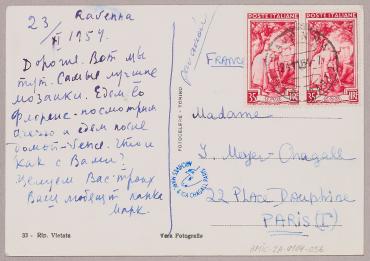 23/XI 1954
Ravenna
Дорогие. Вот мы
тут. Самые лучшие
мозаики. Едем во
Флоренс. посмотрим
и едем после
домой-Vence. Что и
как с Вами?
Целуем Вас троих
Ваш любящий папа
Марк.
33 - Rip. Vietata
Vera Fotografia
FOTOCELERE - TORINO
par avion
FRANCE
POSTE ITALIANE
POSTE ITALIANE
35 LIRE
35 LIRE
Madame
I. Meyer-Chagall
22 Place Dauphine
PARIS (I)